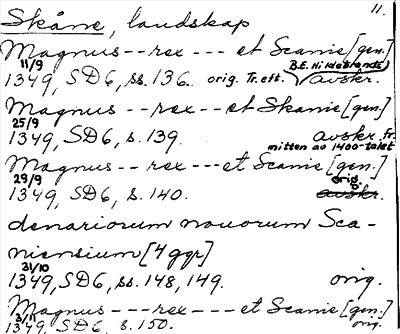 11.
Skåne, landskap
Magnus--rex---et Scanie [gen.]
11/9 B.E. Hildebrands
1349, SD6, ss. 136. orig. Tr. eft. avskr.
Magnus--rex--et Skanie [gen.]
25/9
1349, SD6, s. 139. avskr. fr.
mitten av 1400-talet
Magnus--rex---et Scanie [gen.]
29/9 orig.
1349, SD6, s. 140. avskr.
denariorum nouorum Sca-
niensium [4 ggr]
31/10
1349, SD6, ss. 148, 149. orig.
Magnus---rex---et Scanie [gen.]
3/11
1349, SD6, s. 150. orig.